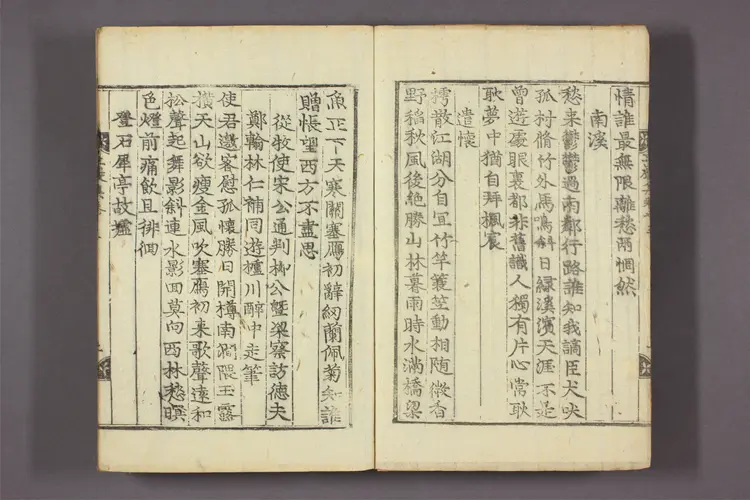 情誰最無限離愁兩惘然
南溪
愁来鬱鬱過南鄰行路誰知我謫臣犬吠
孤村脩竹外馬鳴斜日綠溪濱天涯不是
曾遊處眼裏都非舊識人獨有片心常耿
耿夢中猶自拜楓宸
遣懷
樗散江湖分自宜竹竿篛笠動相随微香
野稻秋風後絶勝山林暮雨時水滿橋梁
魚正下天寒關塞鴈初辭紉蘭佩菊知誰
贈悵望西方不盡思
從牧使宋公通判柳公暨梁察訪德夫
鄭翰林仁補同遊攎川醉中走筆
使君邀客慰孤懷勝日開樽南澗隈玉露
横天山欲瘦金風吹塞鴈初来歌聲遠和
松聲起舞影斜連水影回莫向西林愁暝
色燈前痛飲且徘徊
登石犀亭故墟